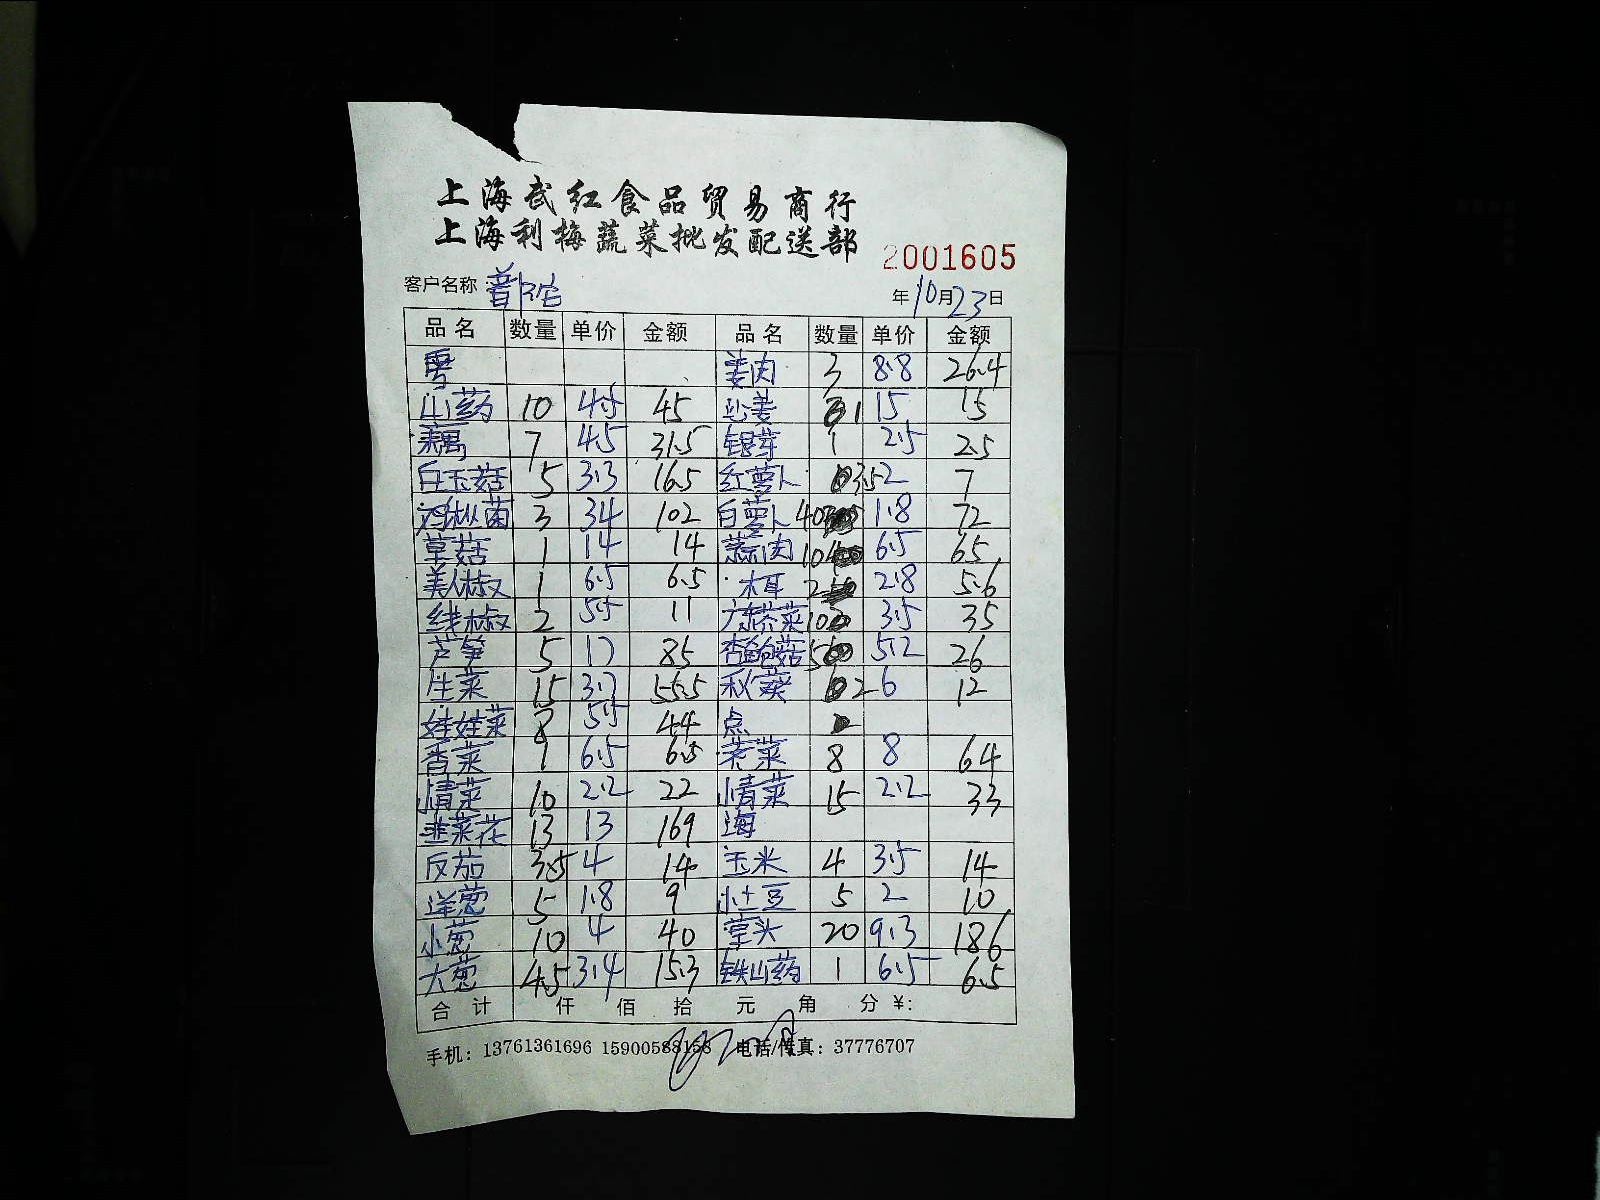 上海武红食品贸易商行
上海利梅蔬菜批发配送部
2001605
客户名称：普陀 年10月23日
品名 数量 单价 金额 品名 数量 单价 金额
粤 姜肉 3 8.8 26.4
山药 10 4.5 45 沙姜 1 15 15
藕 7 4.5 31.5 银芽 1 2.5 2.5
白玉菇 5 3.3 16.5 红萝卜 3.5 2 7
鸡枞菌 3 34 102 白萝卜 40 1.8 72
草菇 1 14 14 蒜肉 10 6.5 65
美人椒 1 6.5 6.5 木耳 2 2.8 5.6
线椒 2 5.5 11 广东芥菜 10 3.5 35
芦笋 5 17 85 杏鲍菇 5 5.2 26
生菜 15 3.7 55.5 秋葵 2 6 12
娃娃菜 8 5.5 44 点
香菜 1 6.5 6.5 菜 8 8 64
情菜 10 2.2 22 情菜 15 2.2 33
韭菜花 13 13 169 海
反茄 3.5 4 14 玉米 4 3.5 14
洋葱 5 1.8 9 小土豆 5 2 10
小葱 10 4 40 堂头 20 9.3 186
大葱 4.5 3.4 15.3 铁山药 1 6.5 6.5
合计 仟 佰 拾 元 角 分 ¥:
手机：13761361696 15900588158 电话/传真：37776707